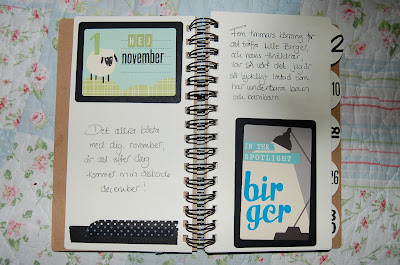 1
HEJ
november
Det allra bästa
med dig, november,
är att efter dig
kommer min älskade
december!
Fem timmars körning för
att träffa lille Birger,
och hans föräldrar
var så värt det. Jag är
så lyckligt lottad som
har underbara barn
och barnbarn.
IN THE
SPOTLIGHT
bir
ger
2
10
18
26
3